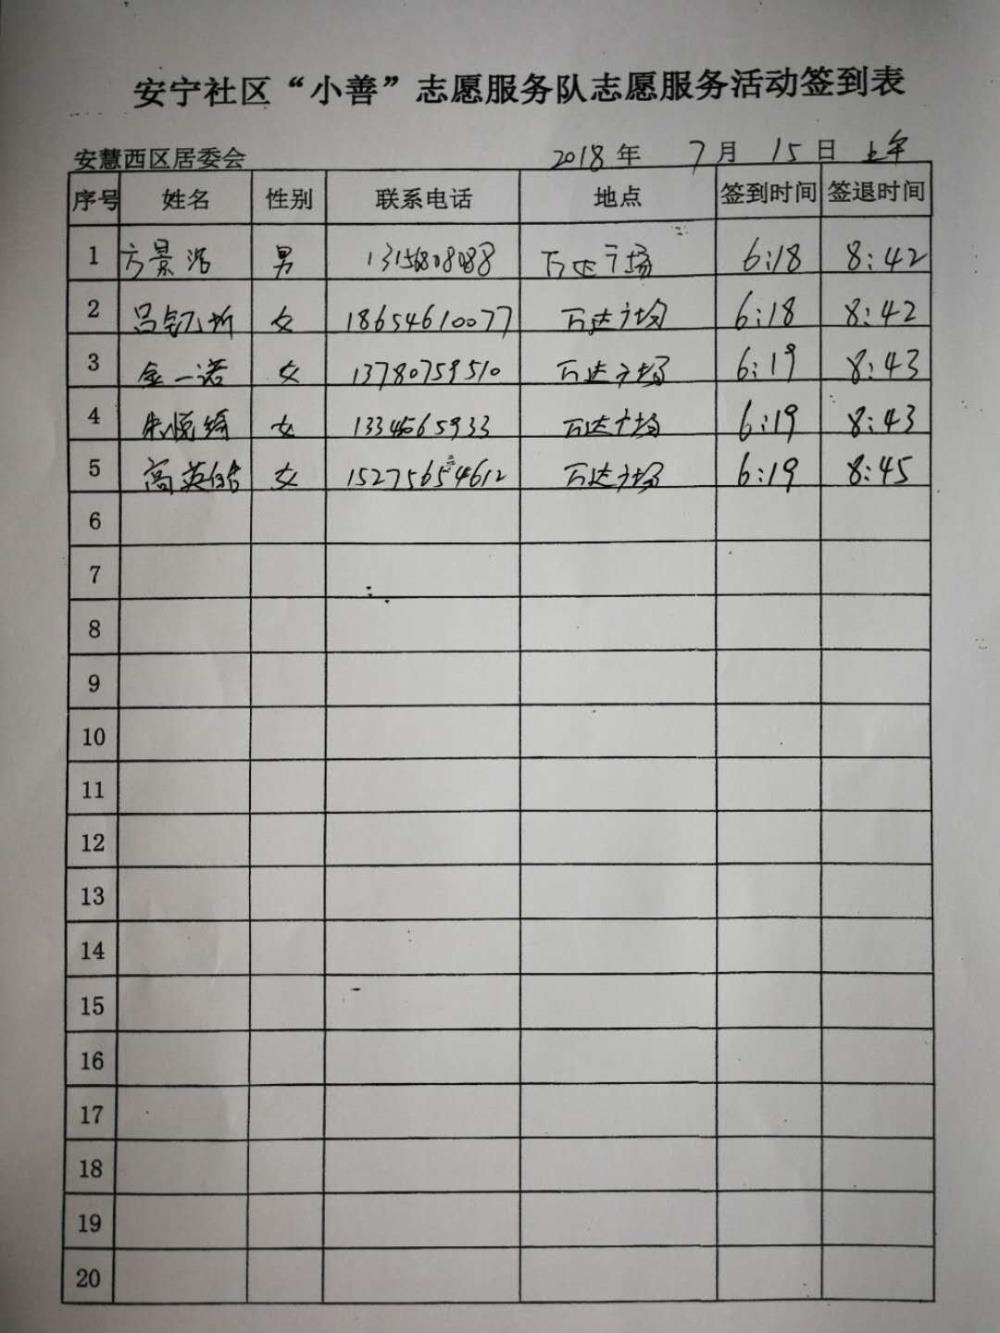 安宁社区“小善”志愿服务队志愿服务活动签到表
安慧西区居委会 2018年 7月 15日 上午
序号 姓名 性别 联系电话 地点 签到时间 签退时间
1 方景浩 男 万达广场 6:18 8:42
2 吕 女 18654610077 万达广场 6:18 8:42
3 金一诺 女 13780759510 万达广场 6:19 8:43
4 朱悦绮 女 万达广场 6:19 8:43
5 高英 女 15275654612 万达广场 6:19 8:45
6
7
8
9
10
11
12
13
14
15
16
17
18
19
20